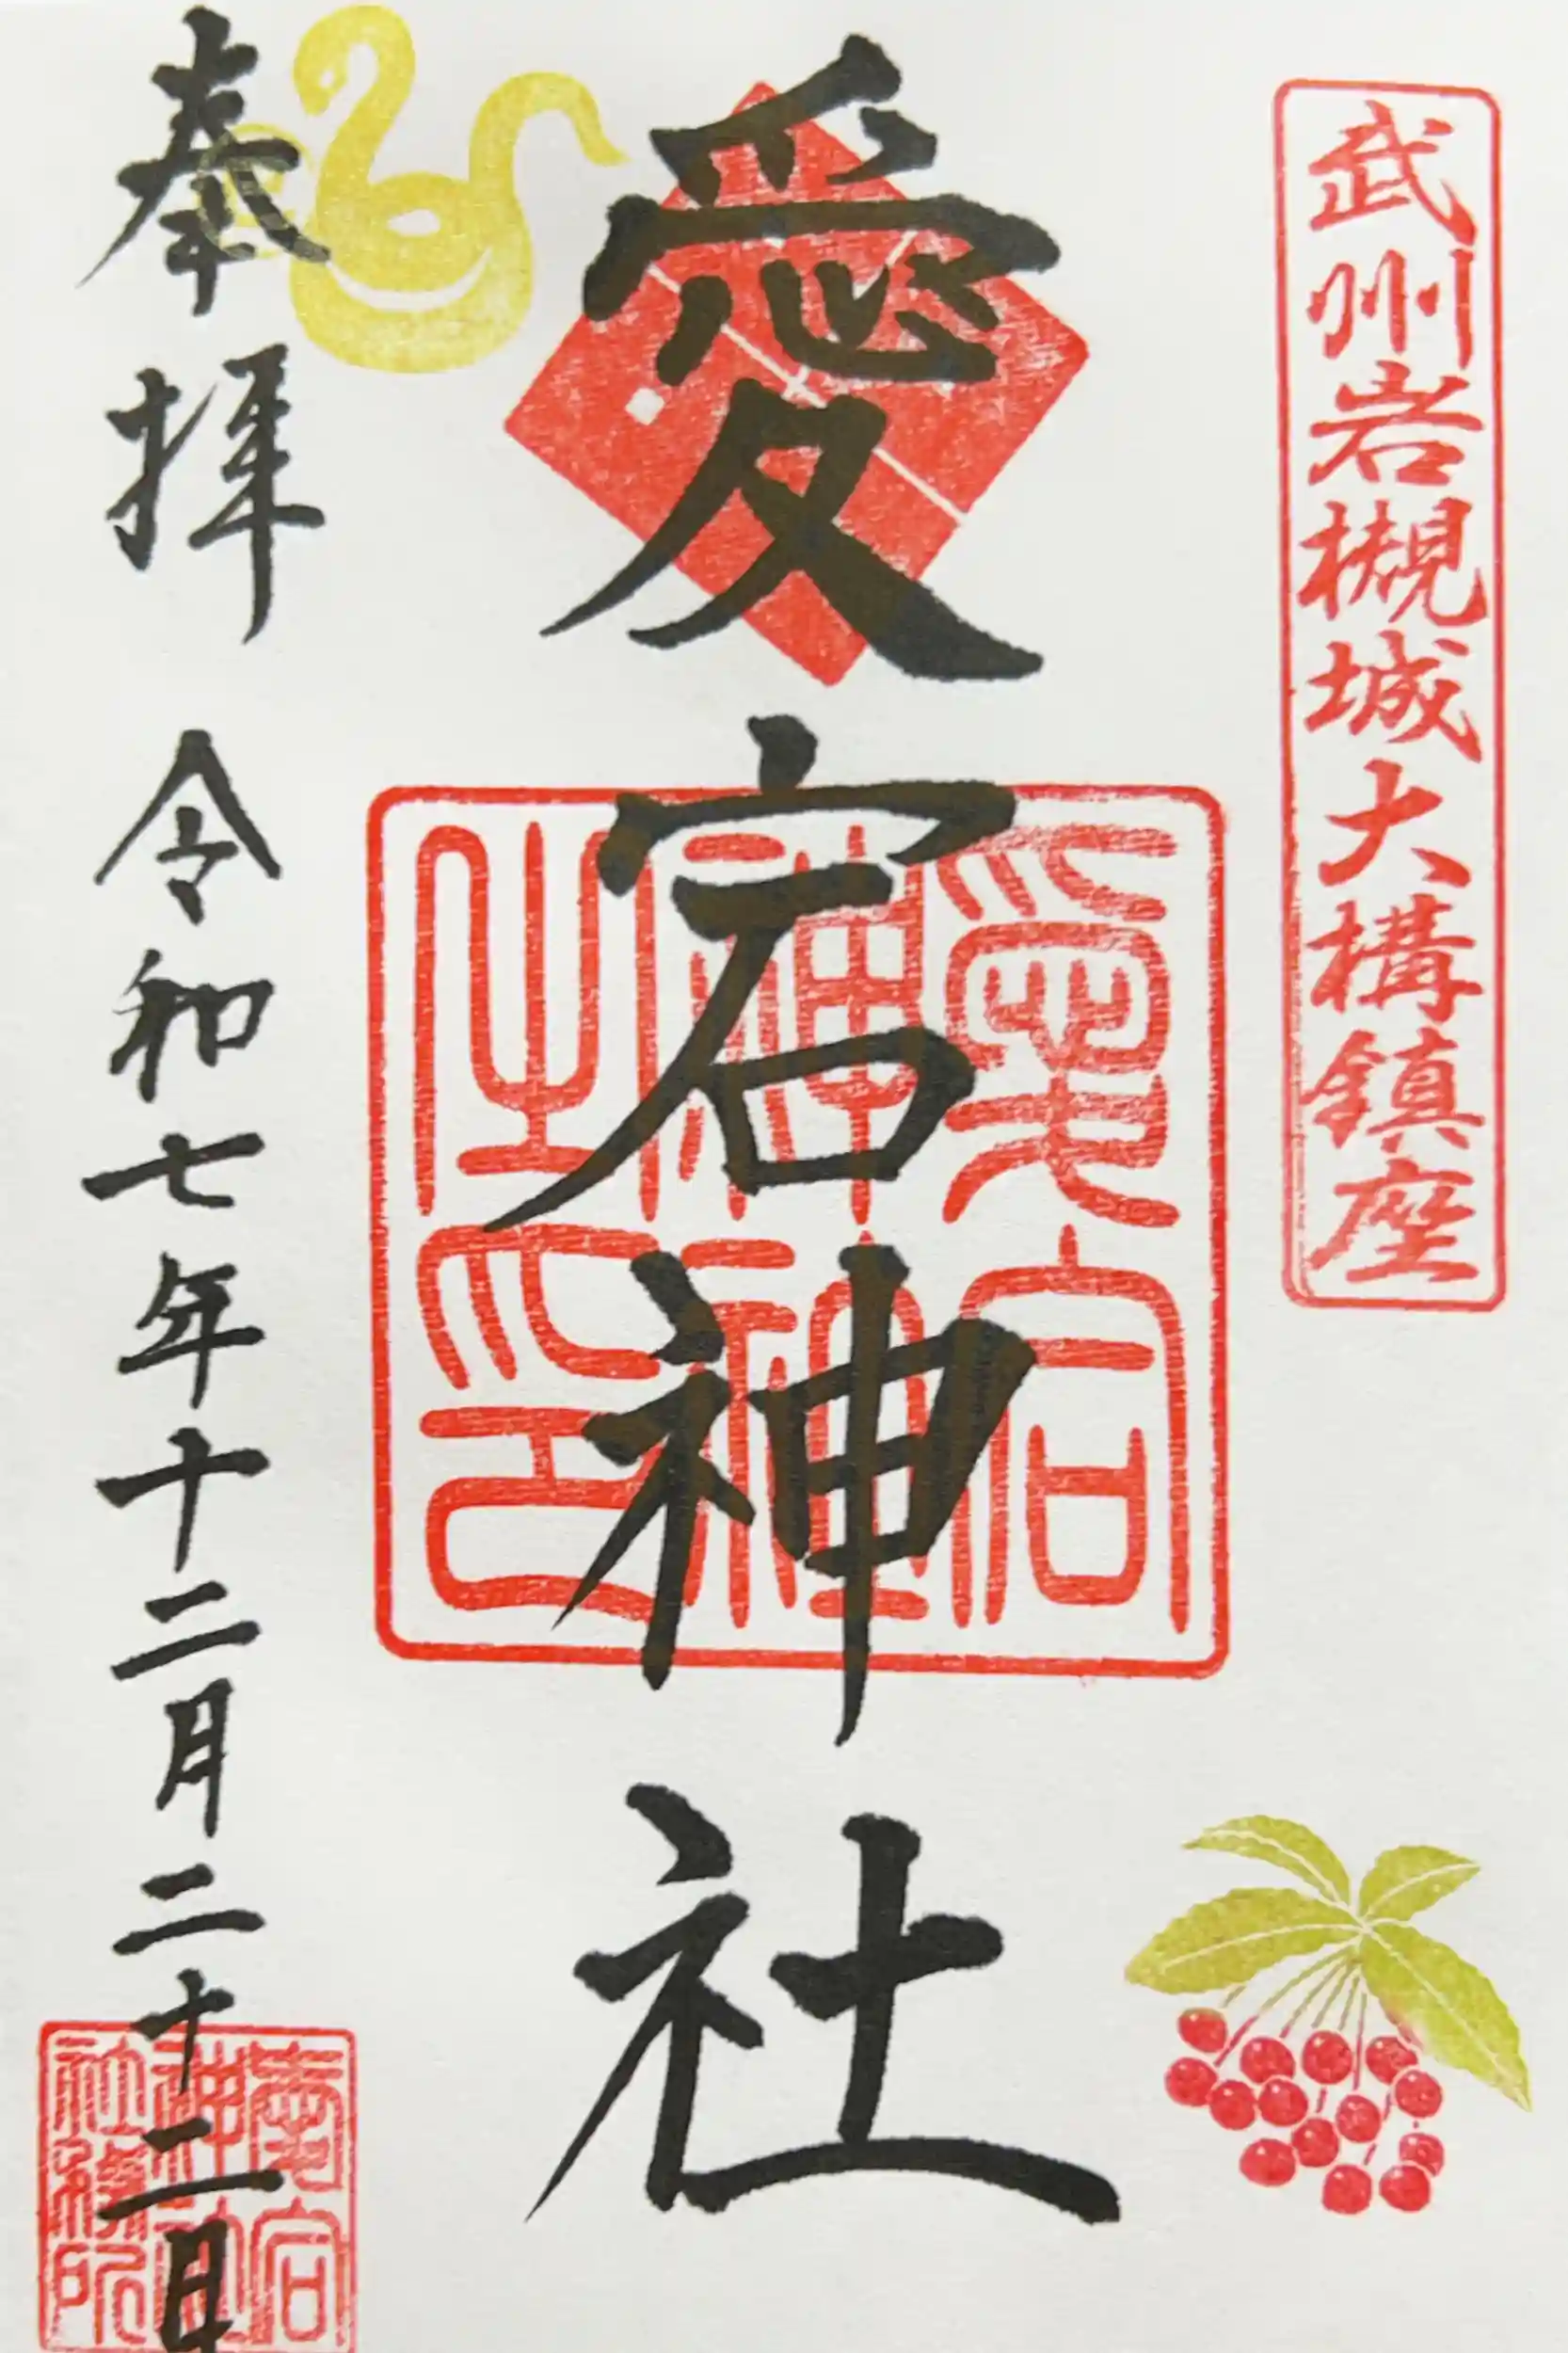 武州岩槻城大構鎮座
愛宕神社
愛宕神社之印
奉拝 令和七年十二月二十二日
愛宕神社社務所